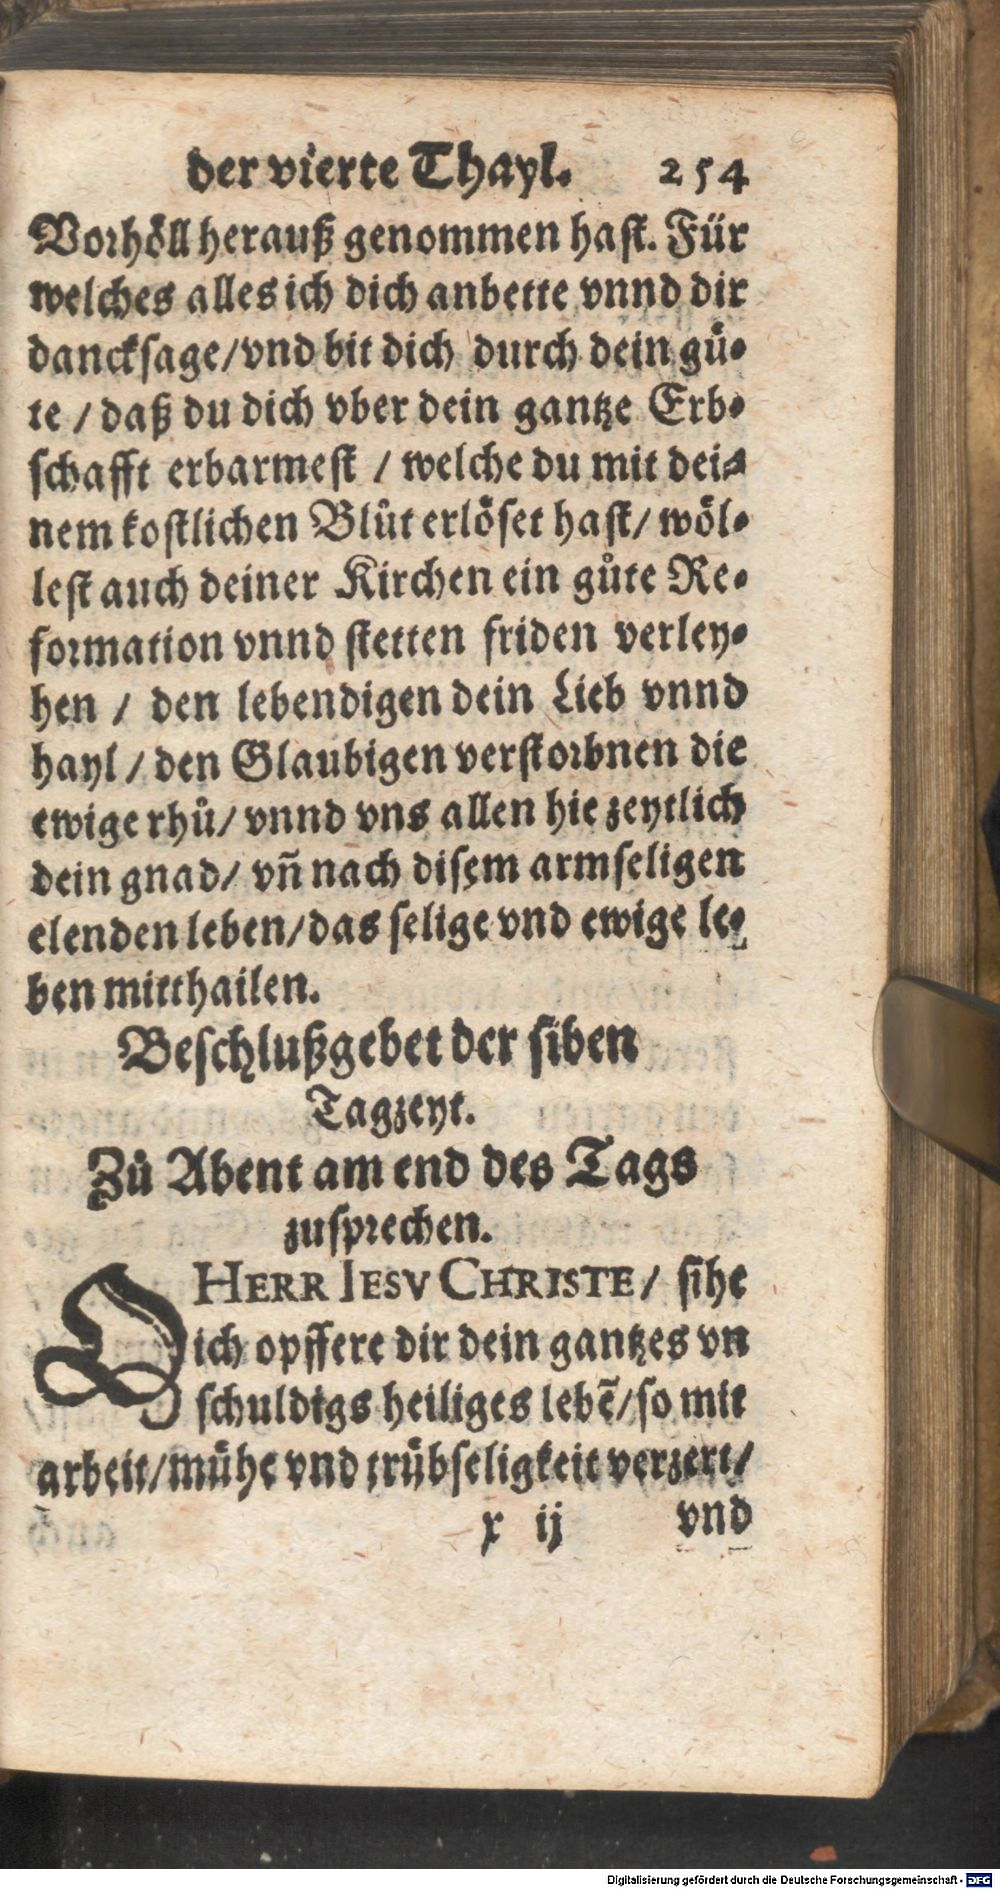 der vierte Thayl. 254
Vorhöll herauß genommen hast. Für
welches alles ich dich anbette vnnd dir
dancksage/vnd bit dich durch dein guͤ-
te / daß du dich vber dein gantze Erb-
schafft erbarmest / welche du mit dei-
nem kostlichen Bluͦt erlöset hast/ wöl-
lest auch deiner Kirchen ein guͦte Re-
formation vnnd stetten friden verley-
hen / den lebendigen dein Lieb vnnd
hayl / den Glaubigen verstorbnen die
ewige rhuͦ/ vnnd vns allen hie zeytlich
dein gnad/ vñ nach disem armseligen
elenden leben/das selige vnd ewige le-
ben mitthailen.
Beschlußgebet der siben
Tagzeyt.
Zuͦ Abent am end des Tags
zusprechen.
O HERR IESV CHRISTE/ sihe
ich opffere dir dein gantzes vn
schuldigs heiliges lebē/so mit
arbeit/muͤhe vnd truͤbseligkeit verzert/
x ij vnd
Digitalisierung gefördert durch die Deutsche Forschungsgemeinschaft - DFG